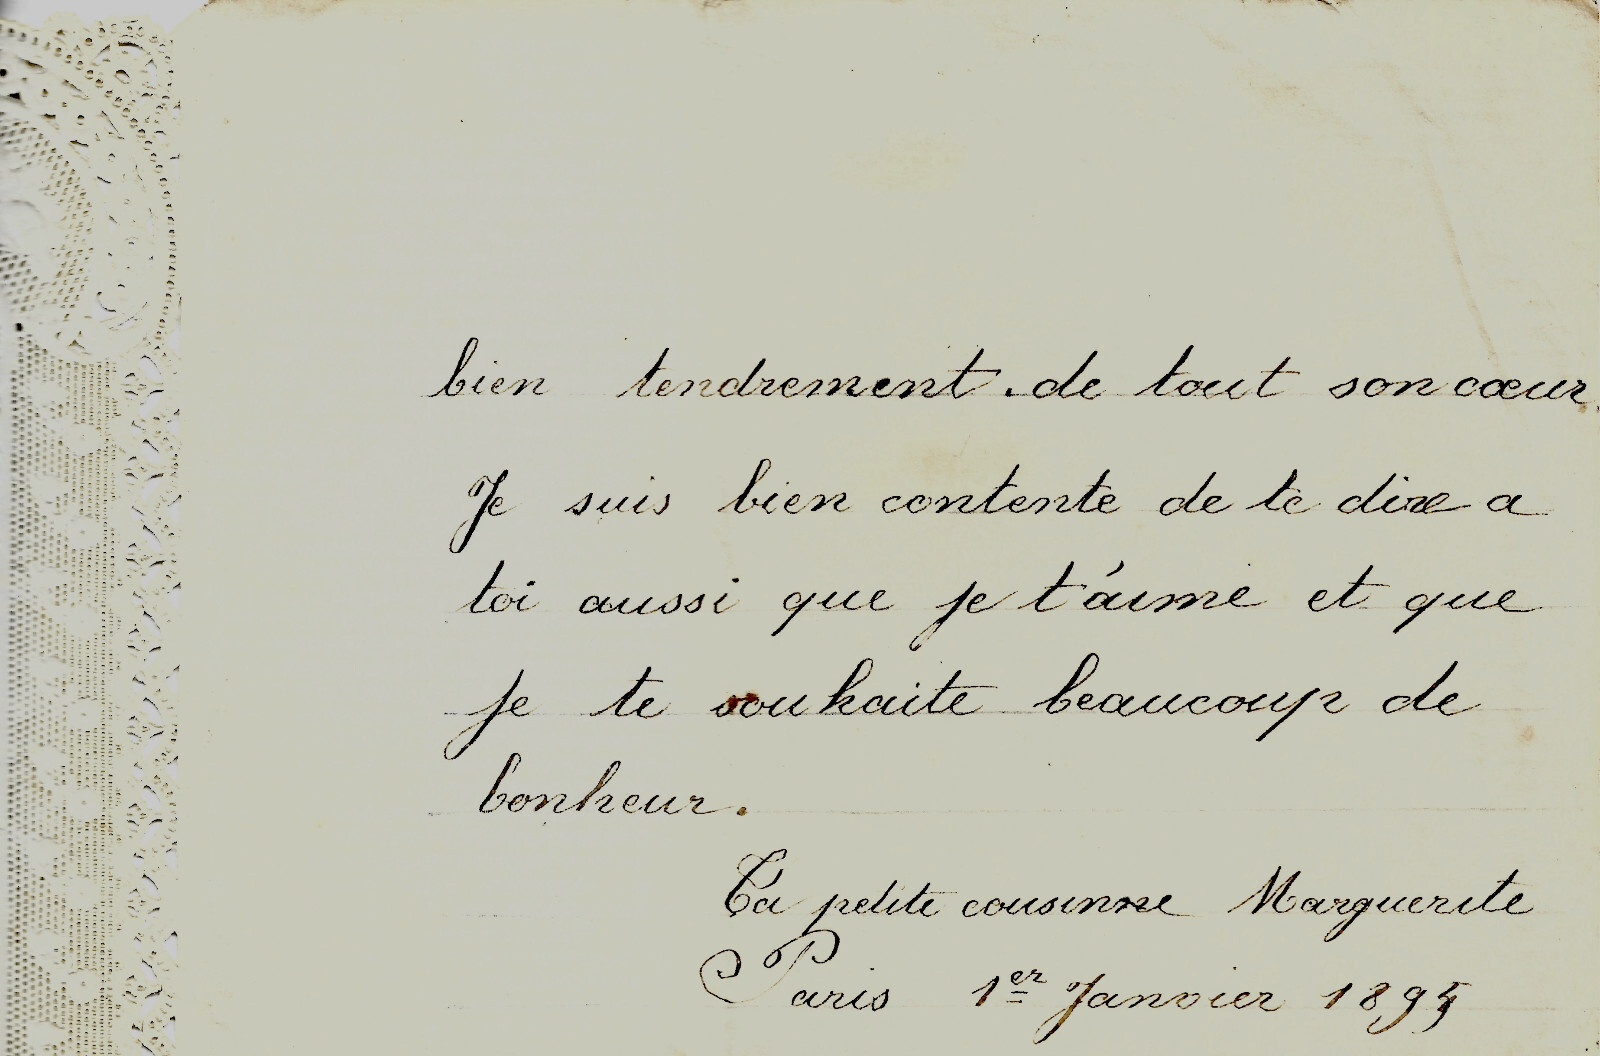 bien tendrement . de tout son cœur.
Je suis bien contente de te dire a
toi aussi que je t'aime et que
je te souhaite beaucoup de
bonheur.
Ta petite cousinne Marguerite
Paris 1er Janvier 1895